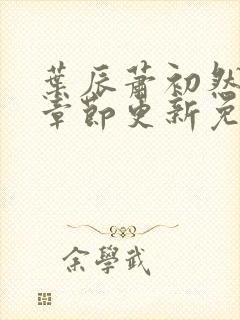 葉辰蕭初然
章節更新免
余學武